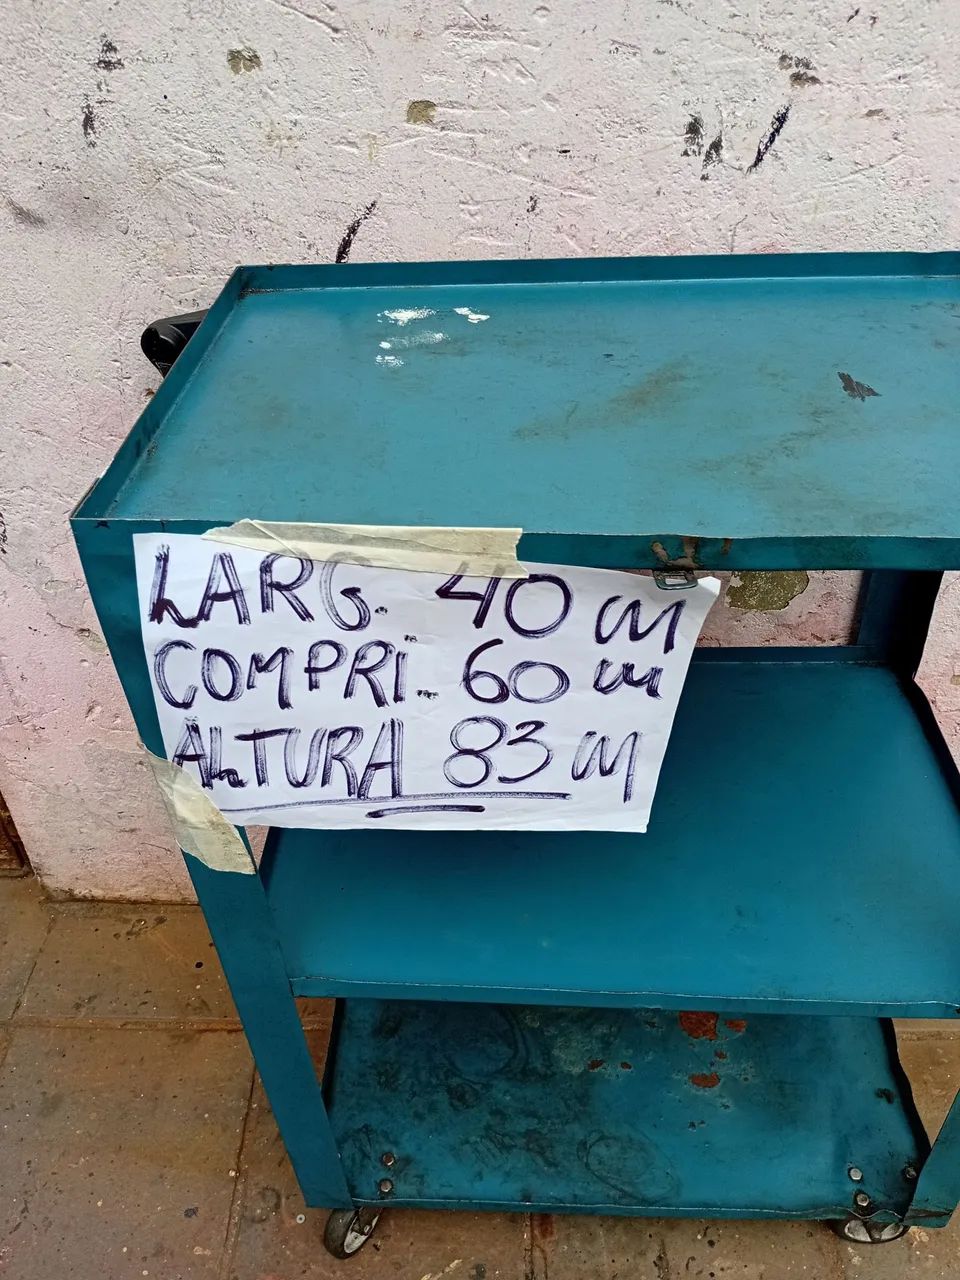 LARG. 40 cm
COMPRI... 60 cm
ALTURA 83 cm